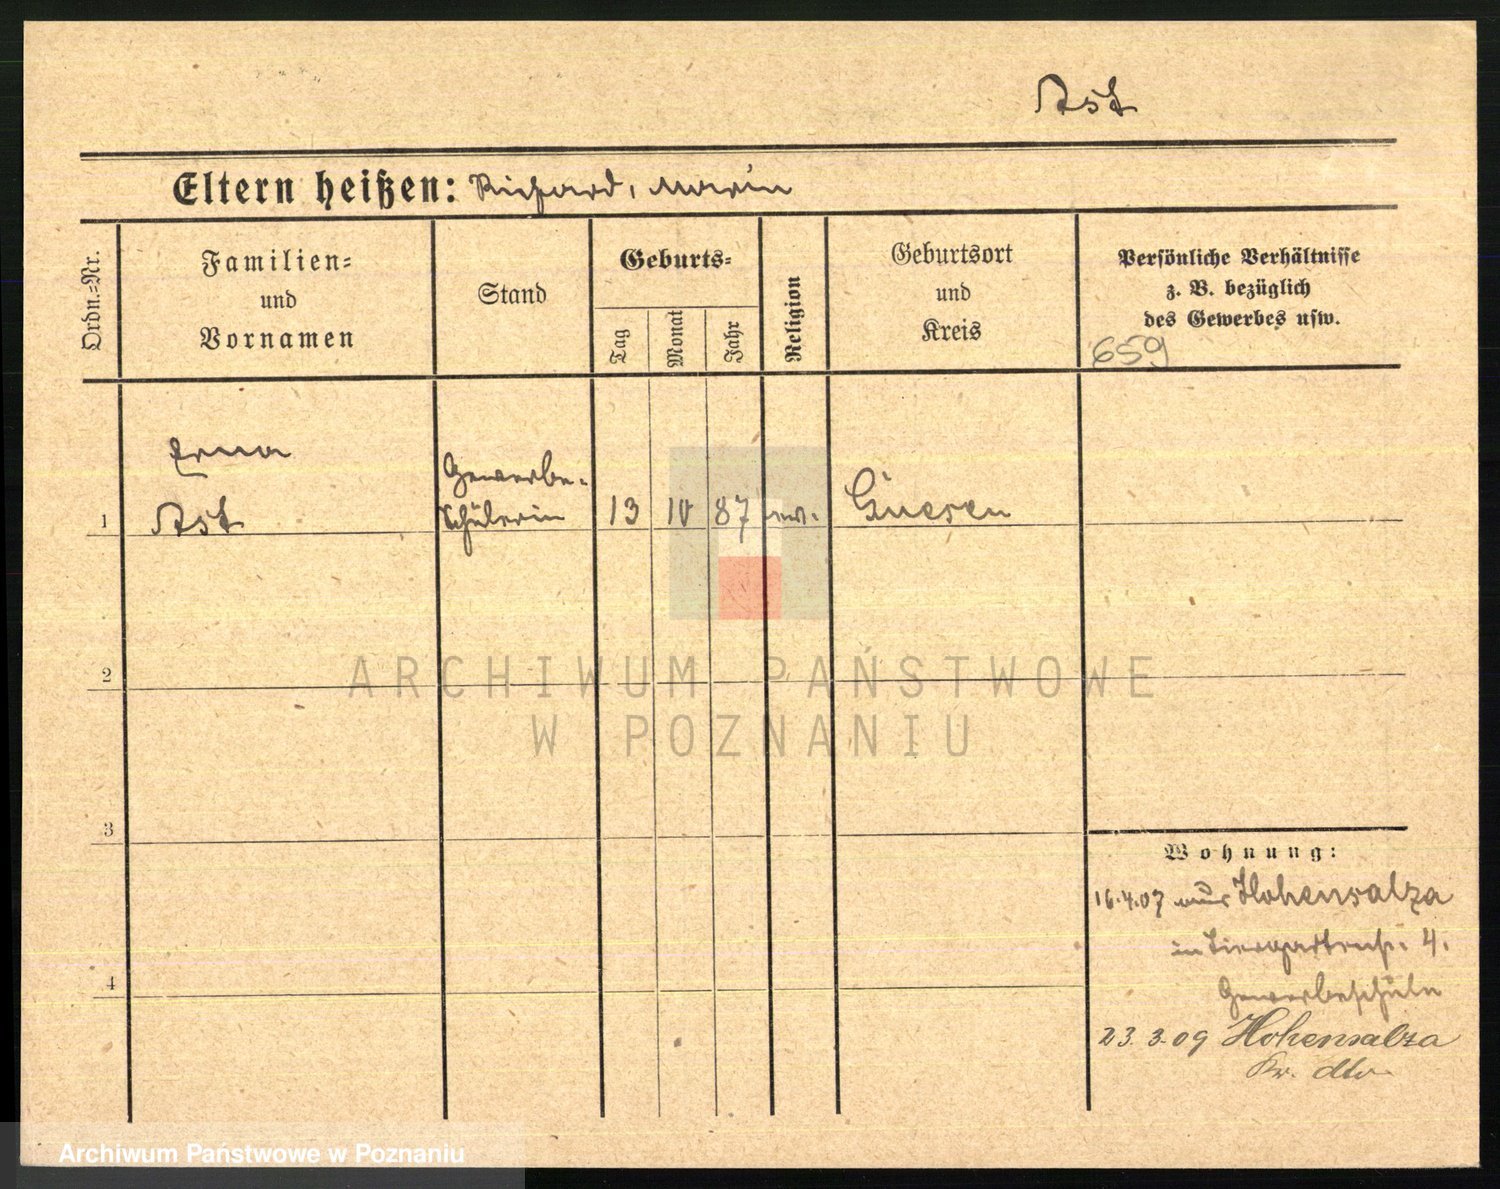 Ast
Eltern heißen: Richard, Marie
Ordn.-Nr.
Familien-
und
Vornamen
Stand
Geburts-
Tag
Monat
Jahr
Religion
Geburtsort
und
Kreis
Persönliche Verhältnisse
z. B. bezüglich
des Gewerbes usw.
659
Erna
Gewerbe-
1 Ast Schülerin 13 10 87 Gnesen
2
3
4
ARCHIWUM PAŃSTWOWE
W POZNANIU
Wohnung:
16.4.07 aus Hohensalza
in Tiergartenstr. 4.
Gewerbeschule
23.3.09 Hohensalza
Kr. dto
Archiwum Państwowe w Poznaniu